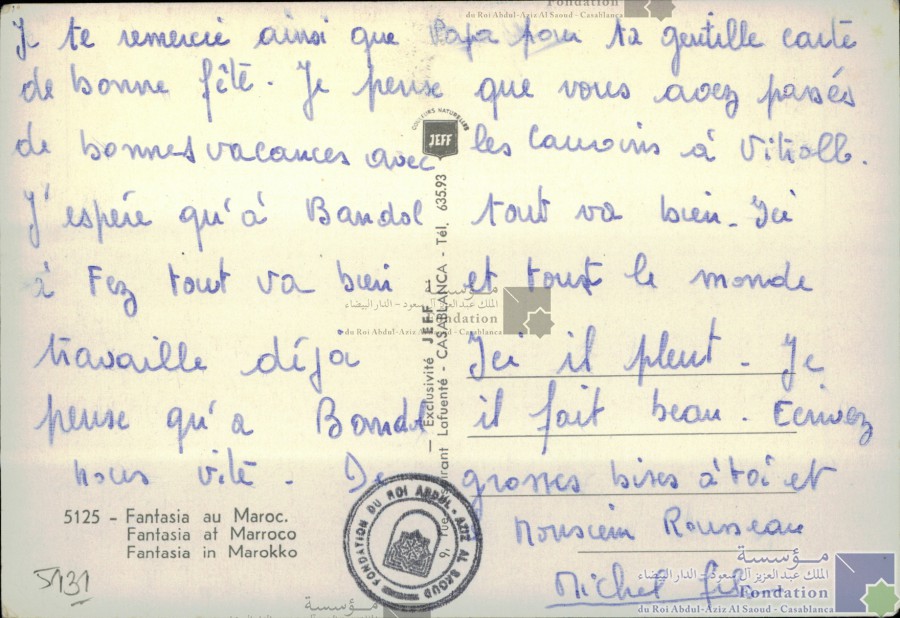 Je te remercie ainsi que Papa pour ta gentille carte
de bonne fête. Je pense que vous avez passés
de bonnes vacances avec les à
J'espère qu'à Bandol tout va bien. Ici
à Fez tout va bien et tout le monde
travaille déja Ici il pleut. Je
pense qu'a Bandol il fait beau. Ecrivez
nous vite. De grosses bises à toi et
Monsieur Rousseau
Michel
COULEURS NATURELLES
JEFF
— Exclusivité JEFF —
9, rue Lafuenté - CASABLANCA - Tél. 635.93
5125 - Fantasia au Maroc.
Fantasia at Marroco
Fantasia in Marokko
5131
FONDATION DU ROI ABDUL-AZIZ AL SAOUD
Fondation
du Roi Abdul-Aziz Al Saoud - Casablanca
مؤسسة
الملك عبد العزيز آل سعود - الدار البيضاء
Fondation
du Roi Abdul-Aziz Al Saoud - Casablanca
مؤسسة
الملك عبد العزيز آل سعود - الدار البيضاء
Fondation
du Roi Abdul-Aziz Al Saoud - Casablanca
مؤسسة